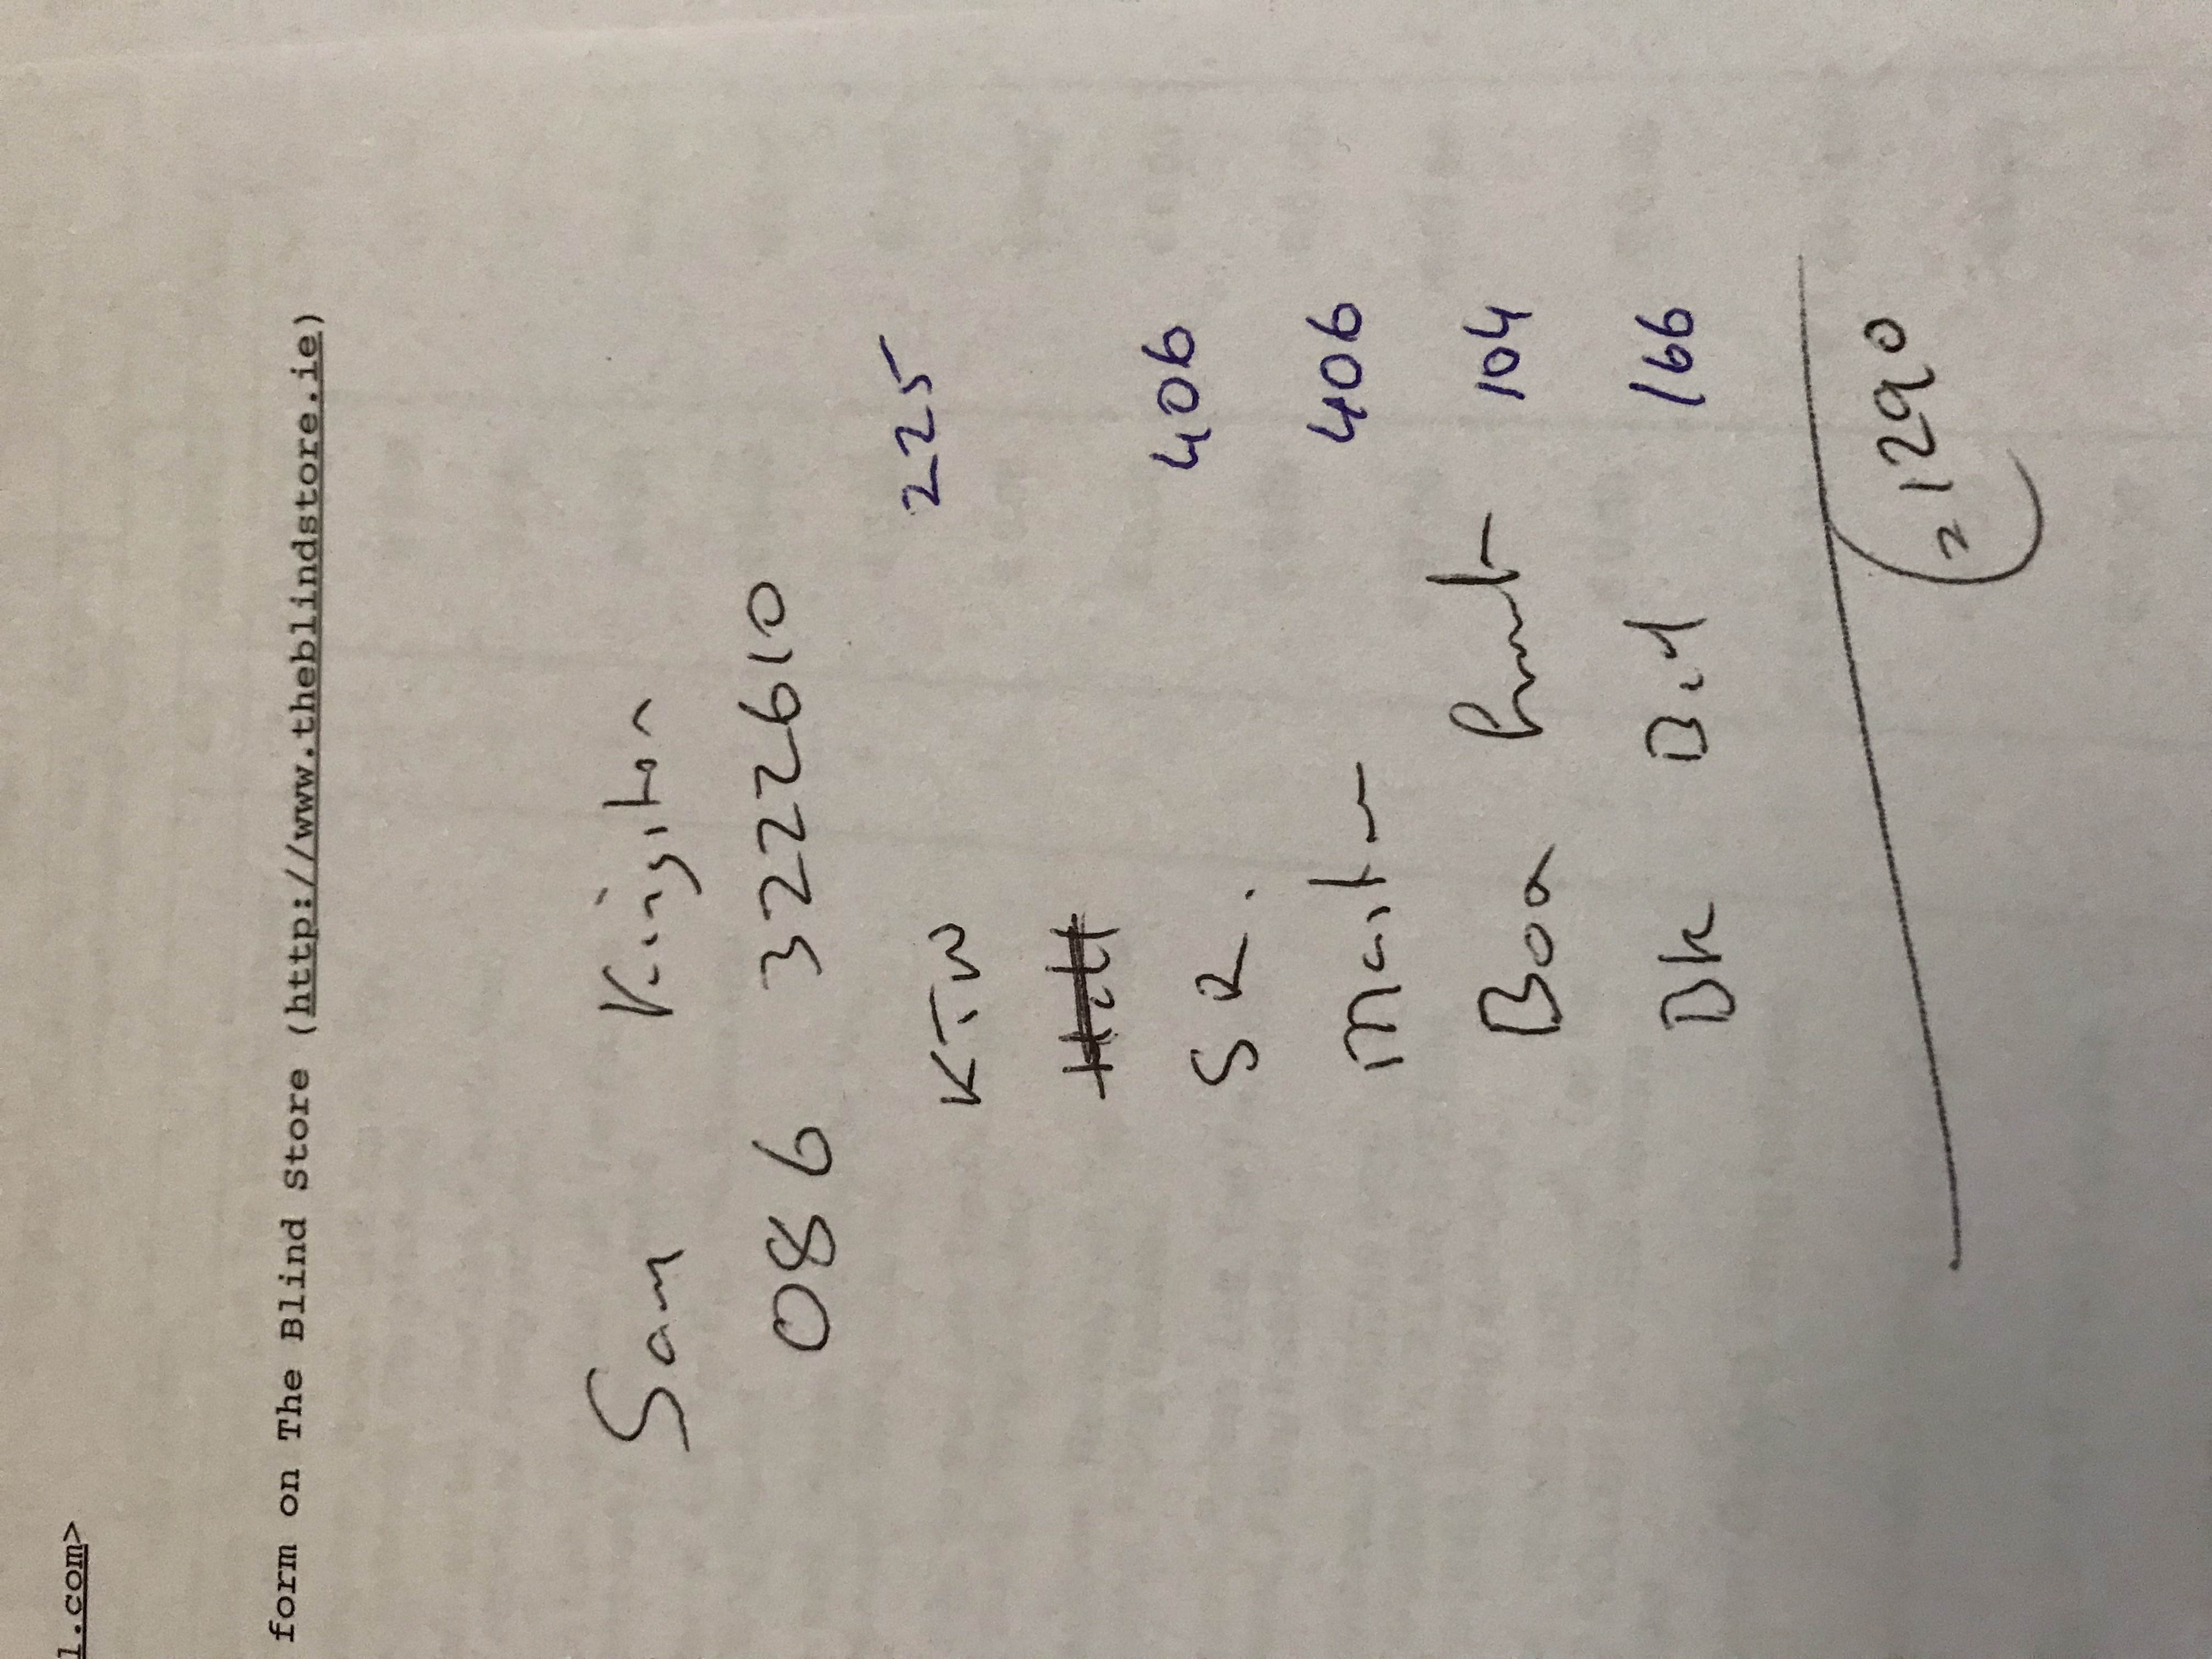 l.com>
form on The Blind Store (http://www.theblindstore.ie)
Sam Kingston
086 3222610
KTW 225
SR. 406
Master 406
Box 104
BK Bed 166
= 1290